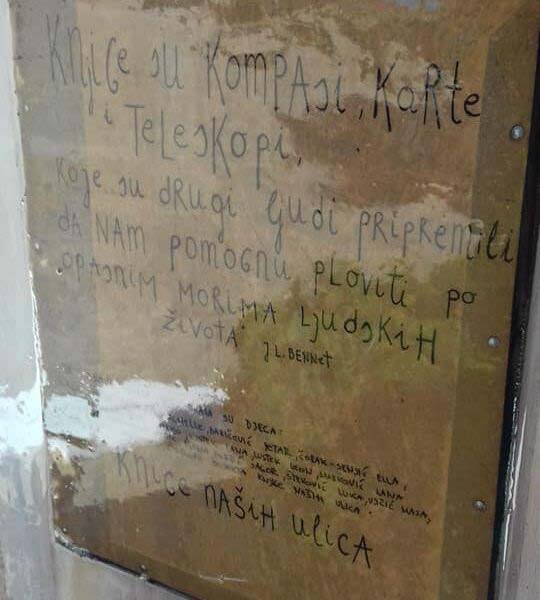 KNjIGE SU KOMPASI, KARTE
i TELESKOPI,
KOJE SU DRUGI LJUDI PRIPREMILI
DA NAM POMOGNU PLOVITI PO
OPASNIM MORIMA LJUDSKIH
ŽIVOTA
J.L. BENNET
SU DJECA:
PETAR, ELLA,
LANA
LUKA, MAJA,
KNJIGE NAŠIH ULICA
KNJIGE NAŠIH ULICA